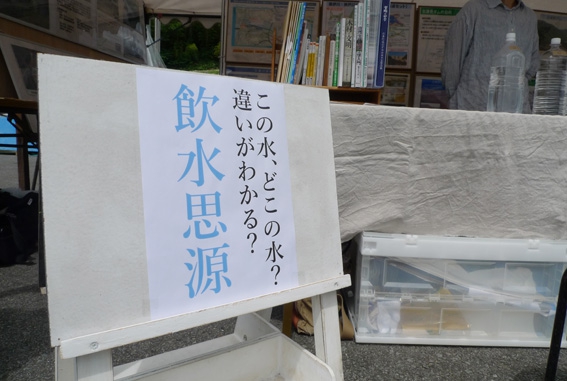 この水、どこの水？
違いがわかる？
飲水思源